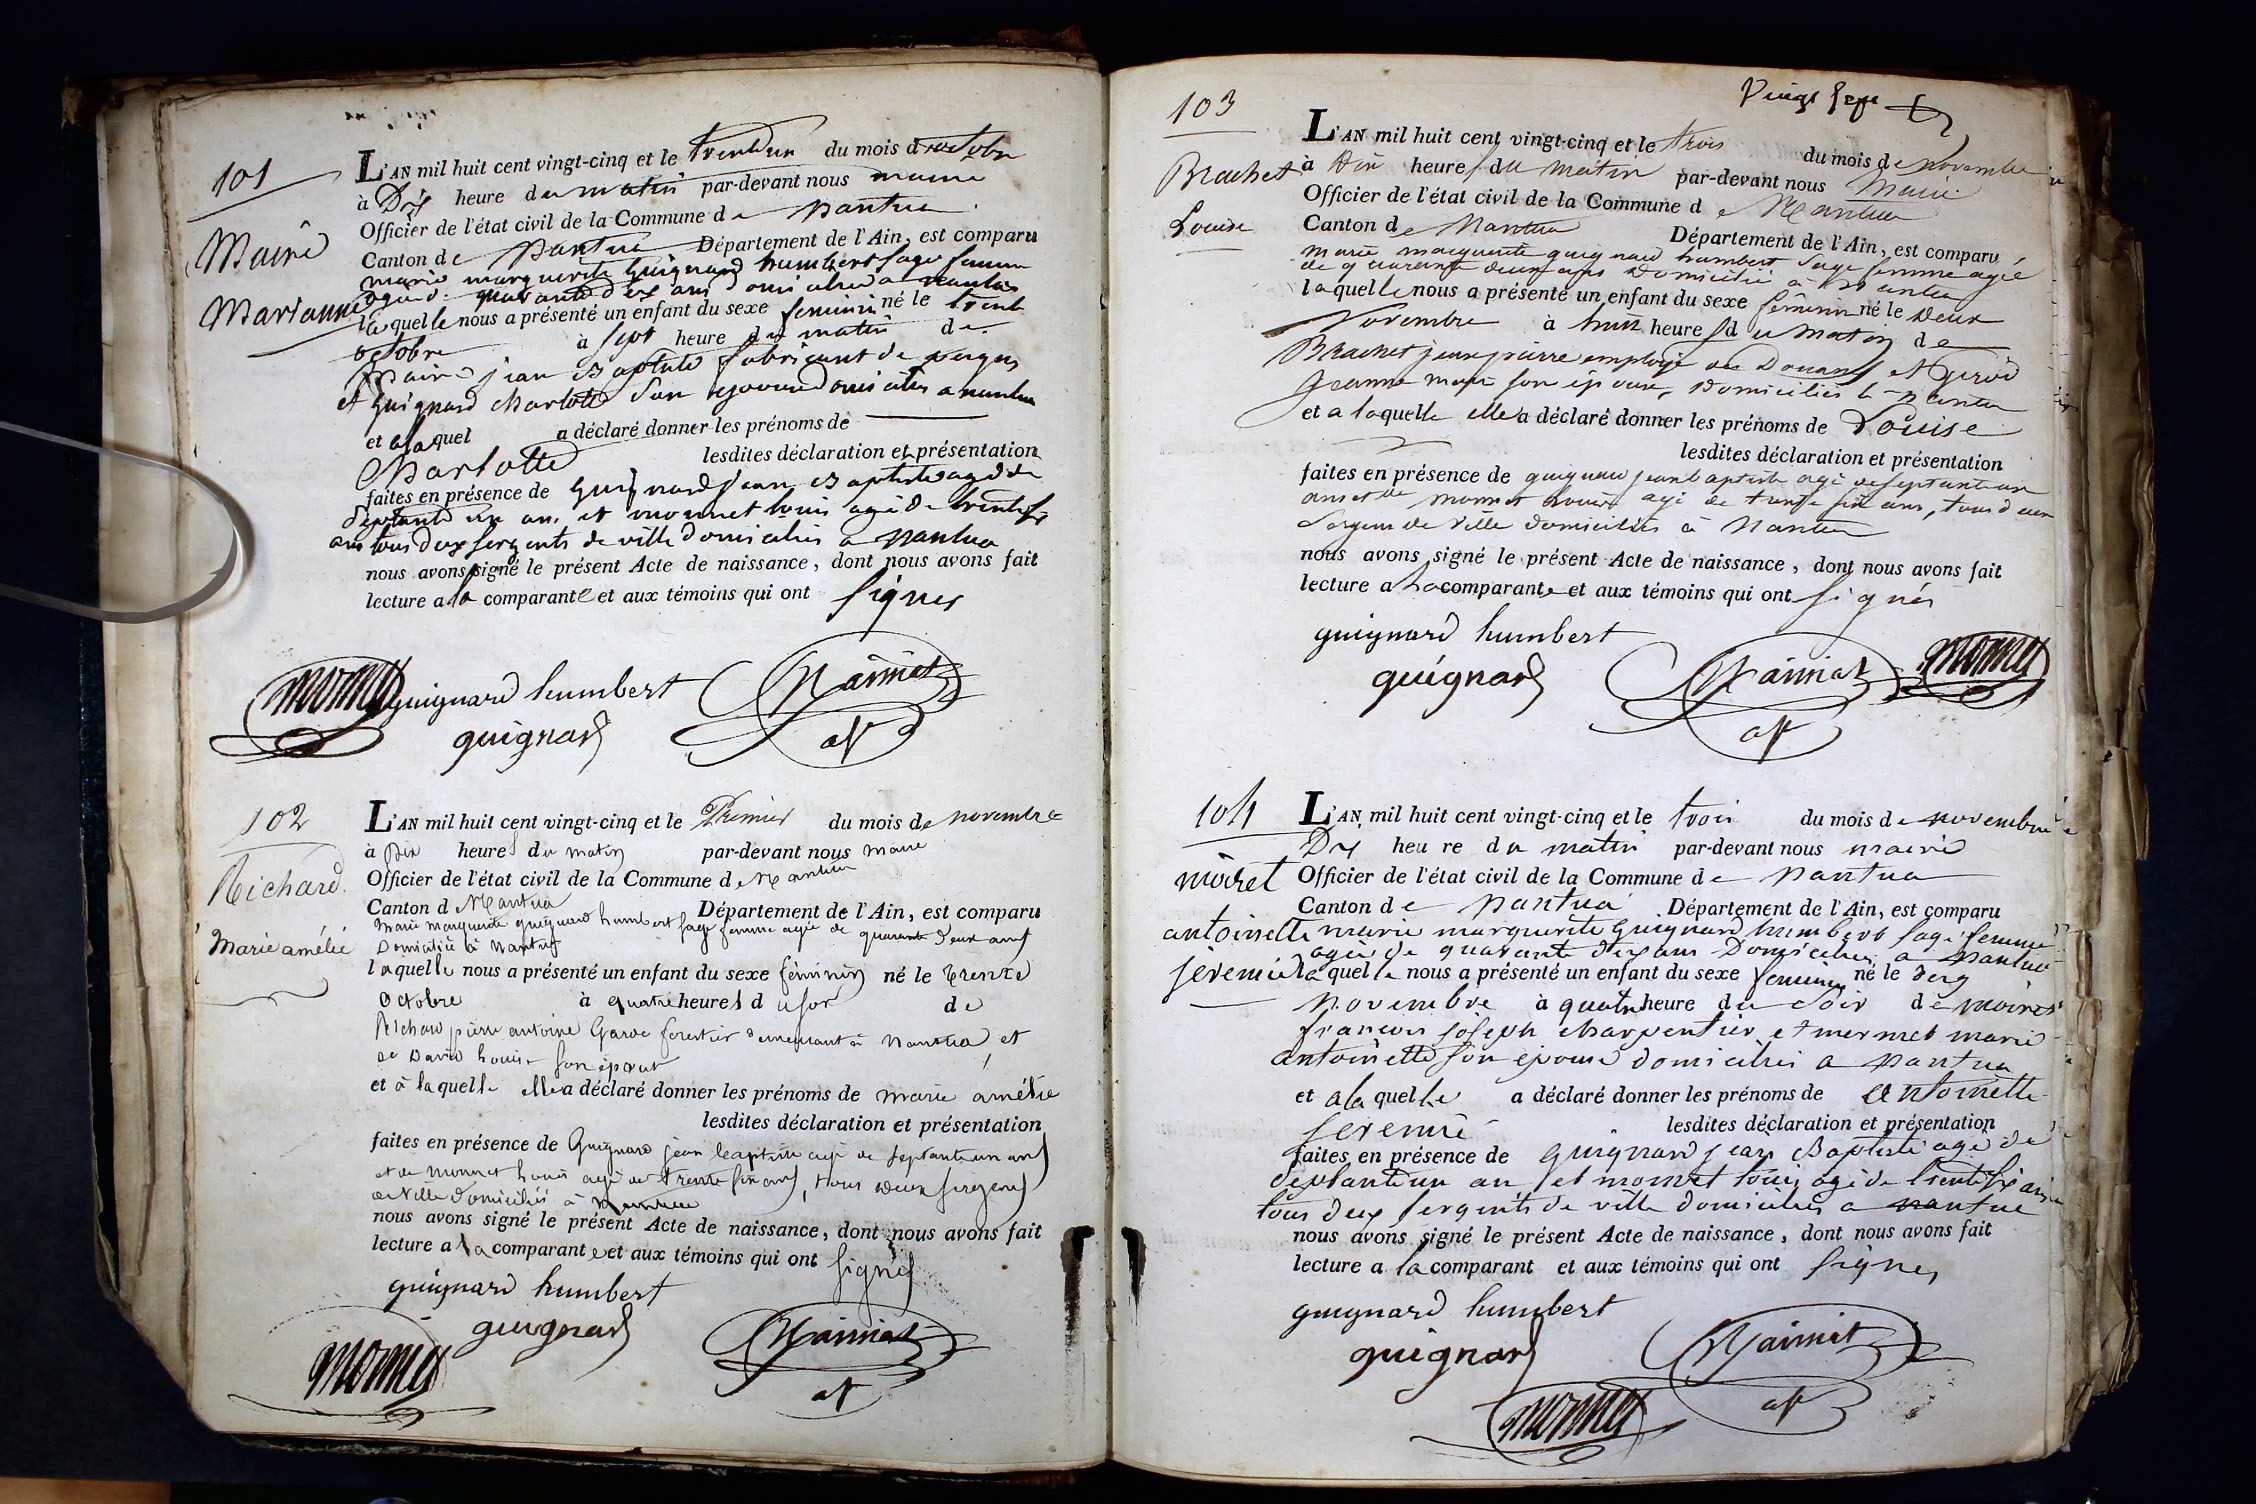 101
Maire
Marianne
L'AN mil huit cent vingt-cinq et le trenteun du mois d'octobre
à Dix heure du matin par-devant nous maire
Officier de l'état civil de la Commune de Nantua
Canton de Nantua Département de l'Ain, est comparu
marie marguerite Guignard humbert sage femme
agée de quarante deux ans domiciliée a nantua
laquelle nous a présenté un enfant du sexe feminin né le trente
octobre à sept heure du matin de
Maire jean Baptiste fabricant de peignes
et Guignard Charlotte son epouse domiciliés a nantua
et a laquel a déclaré donner les prénoms de
Charlotte lesdites déclaration et présentation
faites en présence de Guignard jean Baptiste agé de
septante un ans et monnet louis agé de trente six
ans tous deux sergents de ville domiciliés a nantua
nous avons signé le présent Acte de naissance, dont nous avons fait
lecture a la comparante et aux témoins qui ont signés
monnet guignard humbert
guignard
102
Richard
Marie amélie
L'AN mil huit cent vingt-cinq et le Premier du mois de novembre
à Dix heures du matin par-devant nous maire
Officier de l'état civil de la Commune de Nantua
Canton de Nantua Département de l'Ain, est comparu
Marie Marguerite guignard humbert sage femme agée de quarante deux ans
Domiciliée à Nantua
laquelle nous a présenté un enfant du sexe féminin né le trente
octobre à quatre heures du soir de
Richard pierre antoine Garde forestier demeurant à Nantua et
de David Louise son épouse
et à laquelle elle a déclaré donner les prénoms de marie amélie
lesdites déclaration et présentation
faites en présence de Guignard jean baptiste agé de septante un ans
et de Monnet Louis agé de trente six ans, tous deux sergens
de ville domiciliés à Nantua
nous avons signé le présent Acte de naissance, dont nous avons fait
lecture a la comparante et aux témoins qui ont signés
guignard humbert
guignard
monnet
Vingt sept
103
Brachet
Louise
L'AN mil huit cent vingt-cinq et le trois du mois de novembre
à Dix heures du matin par-devant nous Maire
Officier de l'état civil de la Commune de Nantua
Canton de Nantua Département de l'Ain, est comparu
marie marguerite guignard humbert sage femme agée
de quarante deux ans Domiciliée à Nantua
laquelle nous a présenté un enfant du sexe féminin né le Deux
Novembre à huit heures du matin de
Brachet jean pierre employé des Douanes et Girod
Jeanne marie son épouse, Domiciliés à Nantua
et a laquelle elle a déclaré donner les prénoms de Louise
lesdites déclaration et présentation
faites en présence de guignard jean baptiste agé de septante un
ans et de monnet Louis agé de trente six ans, tous deux
Sergens de ville domiciliés à Nantua
nous avons signé le présent Acte de naissance, dont nous avons fait
lecture a la comparante et aux témoins qui ont signés
guignard humbert
guignard monnet
104
moiret
antoinette
jeremie
L'AN mil huit cent vingt-cinq et le trois du mois de novembre
Dix heure du matin par-devant nous maire
Officier de l'état civil de la Commune de Nantua
Canton de Nantua Département de l'Ain, est comparu
marie marguerite Guignard humbert sage femme
agée de quarante deux ans Domiciliée a nantua
laquelle nous a présenté un enfant du sexe feminin né le deux
novembre à quatre heure du soir de moiret
francois joseph charpentier et mermet marie
antoinette son epouse domiciliés a nantua
et a la quelle a déclaré donner les prénoms de antoinette
jeremie lesdites déclaration et présentation
faites en présence de guignard jean Baptiste agé de
septante un an et monnet louis agé de trente six ans
tous deux sergents de ville domiciliés a nantua
nous avons signé le présent Acte de naissance, dont nous avons fait
lecture a la comparant et aux témoins qui ont signés
guignard humbert
guignard
monnet